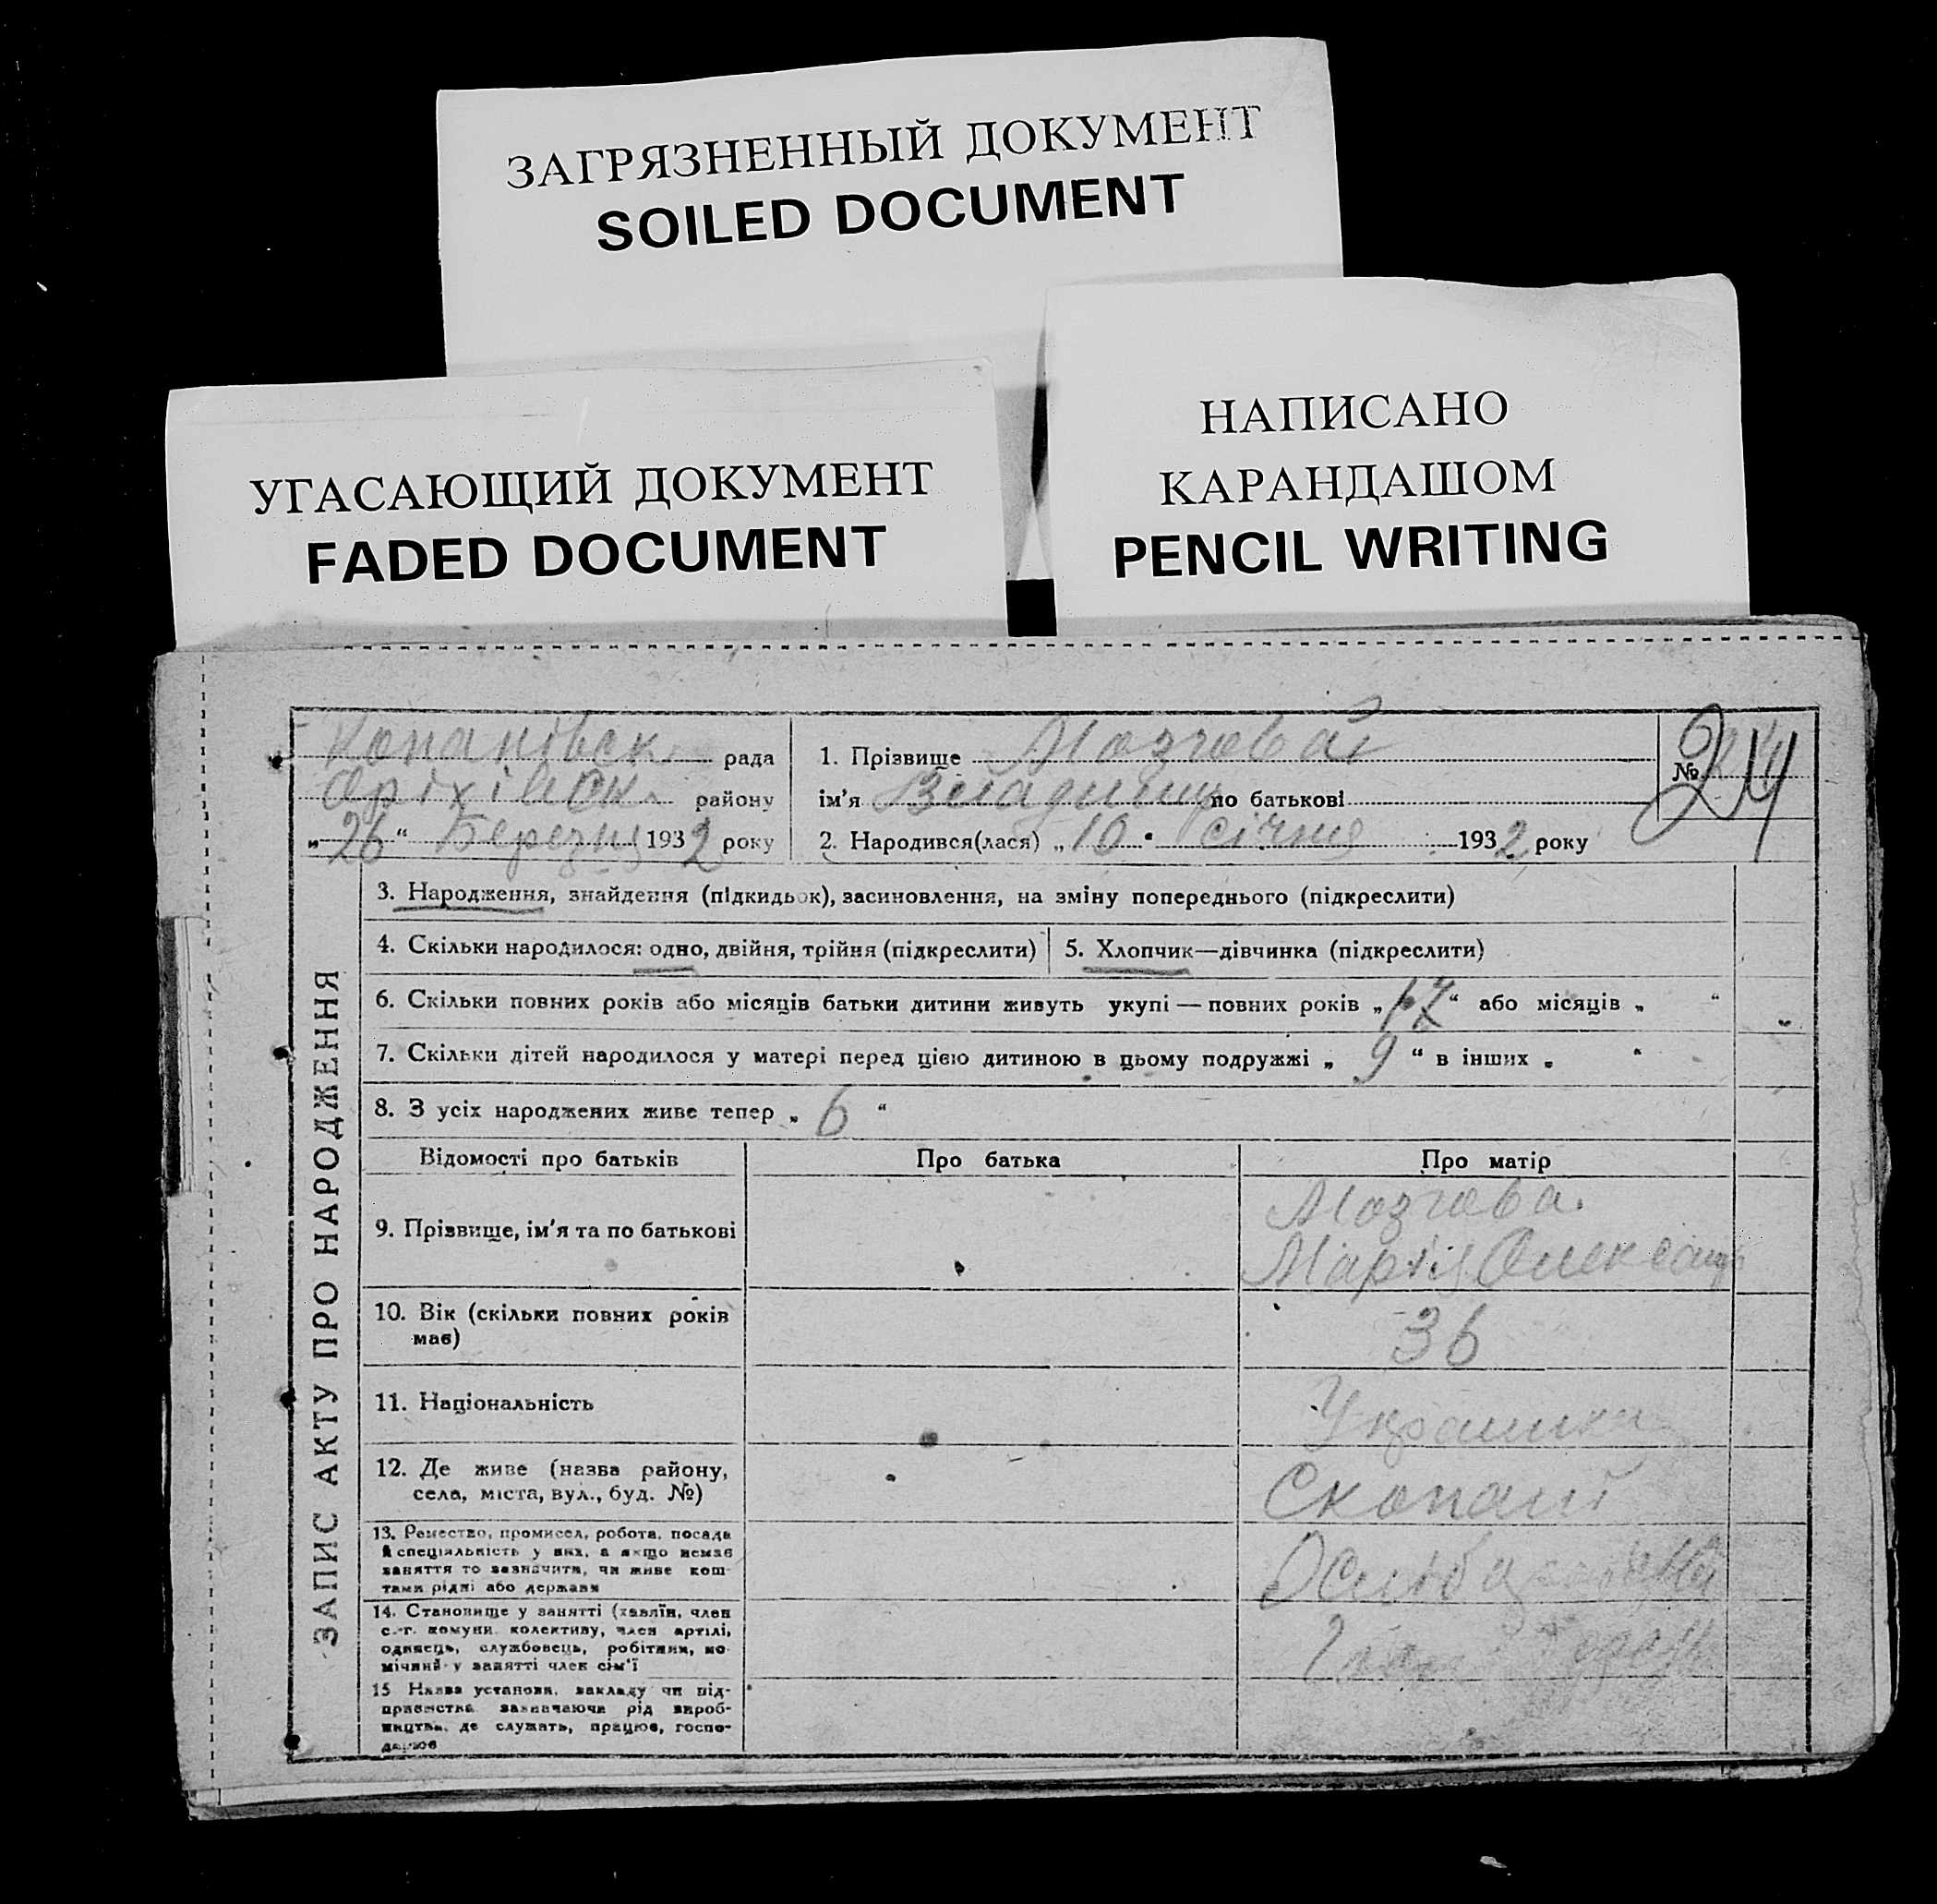 ЗАГРЯЗНЕННЫЙ ДОКУМЕНТ
SOILED DOCUMENT
УГАСАЮЩИЙ ДОКУМЕНТ
FADED DOCUMENT
НАПИСАНО
КАРАНДАШОМ
PENCIL WRITING
Копанівск. рада
Оріхівск. району
„26“ Березня 1932 року
1. Прізвище Мозговай
ім'я Владимир по батькові
№ 214
2. Народився(лася) „10“ січня 1932 року
ЗАПИС АКТУ ПРО НАРОДЖЕННЯ
3. Народження, знайдення (підкидьок), засиновлення, на зміну попереднього (підкреслити)
4. Скільки народилося: одно, двійня, трійня (підкреслити)
5. Хлопчик—дівчинка (підкреслити)
6. Скільки повних років або місяців батьки дитини живуть укупі — повних років „17“ або місяців „ “
7. Скільки дітей народилося у матері перед цією дитиною в цьому подружжі „ 9 “ в інших „ “
8. З усіх народжених живе тепер „ 6 “
Відомості про батьків Про батька Про матір
9. Прізвище, ім'я та по батькові
Мозгова
Марія Олександ
10. Вік (скільки повних років
має)
36
11. Національність
Украинка
12. Де живе (назва району,
села, міста, вул., буд. №)
С Копані
13. Ремество, промисел, робота, посада
й спеціяльність у них, а якщо немає
заняття то зазначити, чи живе кош-
тами рідні або держави
14. Становище у занятті (хазяїн, член
с.-г. комуни, колективу, член артілі,
одинець, службовець, робітник, по-
мічний у занятті член сім'ї
15 Назва установи, закладу чи під-
приємства зазначаючи рід вироб-
ництва, де служить, працює, госпо-
дарює